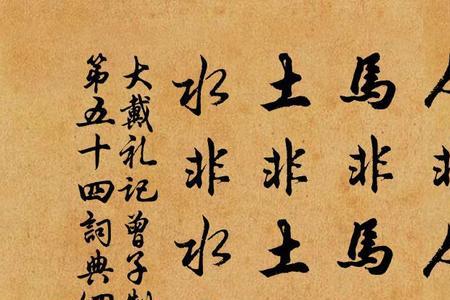 馬非馬
土非土
水非水
大戴礼记曾子制
第五十四詞典